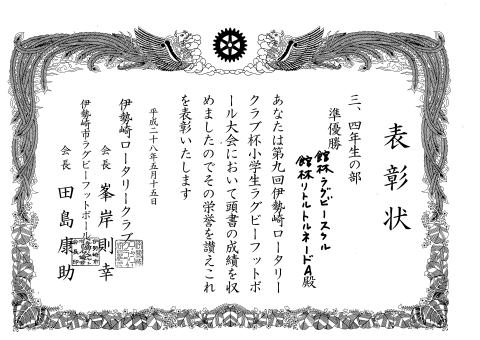 表彰状
三、四年生の部
準優勝
館林ラグビースクール
館林リトルトルネードA殿
あなたは第九回伊勢崎ロータリー
クラブ杯小学生ラグビーフットボ
ール大会において頭書の成績を収
めましたのでその栄誉を讃えこれ
を表彰いたします
平成二十八年五月十五日
伊勢崎ロータリークラブ
会長 峯岸則幸
伊勢崎市ラグビーフットボール
会長 田島康助